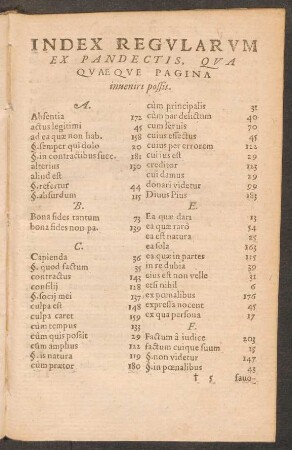 INDEX REGVLARVM
EX PANDECTIS, QVA
QVAEQVE PAGINA
inueniri possit.
A.
Absentia 172
actus legitimi 45
ad ea quæ non hab. 158
§. semper qui dolo 20
§. in contractibus succ. 181
alterius 130
aliud est
§. refertur 44
§. absurdum 115
B.
Bona fides tantum 73
bona fides non pa. 139
C.
Capienda 36
§. quod factum 35
contractus 143
consilij 118
§. socij mei 137
culpa est 148
culpa caret 159
cùm tempus 133
cùm quis possit 29
cùm amplius 122
§. is natura 119
cùm prætor 180
cùm principalis 31
cùm par delictum 40
cùm seruus 70
cuius effectus 45
cuius per errorem 122
cuius est 29
creditor 113
cui damus 29
donari videtur 99
Diuus Pius 183
E.
Ea quæ dari 13
ea quæ rarò 54
ea est natura 25
ea sola 163
ea quæ in partes 115
in re dubia 30
eius est non velle 31
etsi nihil 6
ex pœnalibus 176
expressa nocent 45
ex qua persona 17
F.
Factum à iudice 203
factum cuique suum 15
§. non videtur 147
§. in pœnalibus 43
† 5 fauo-